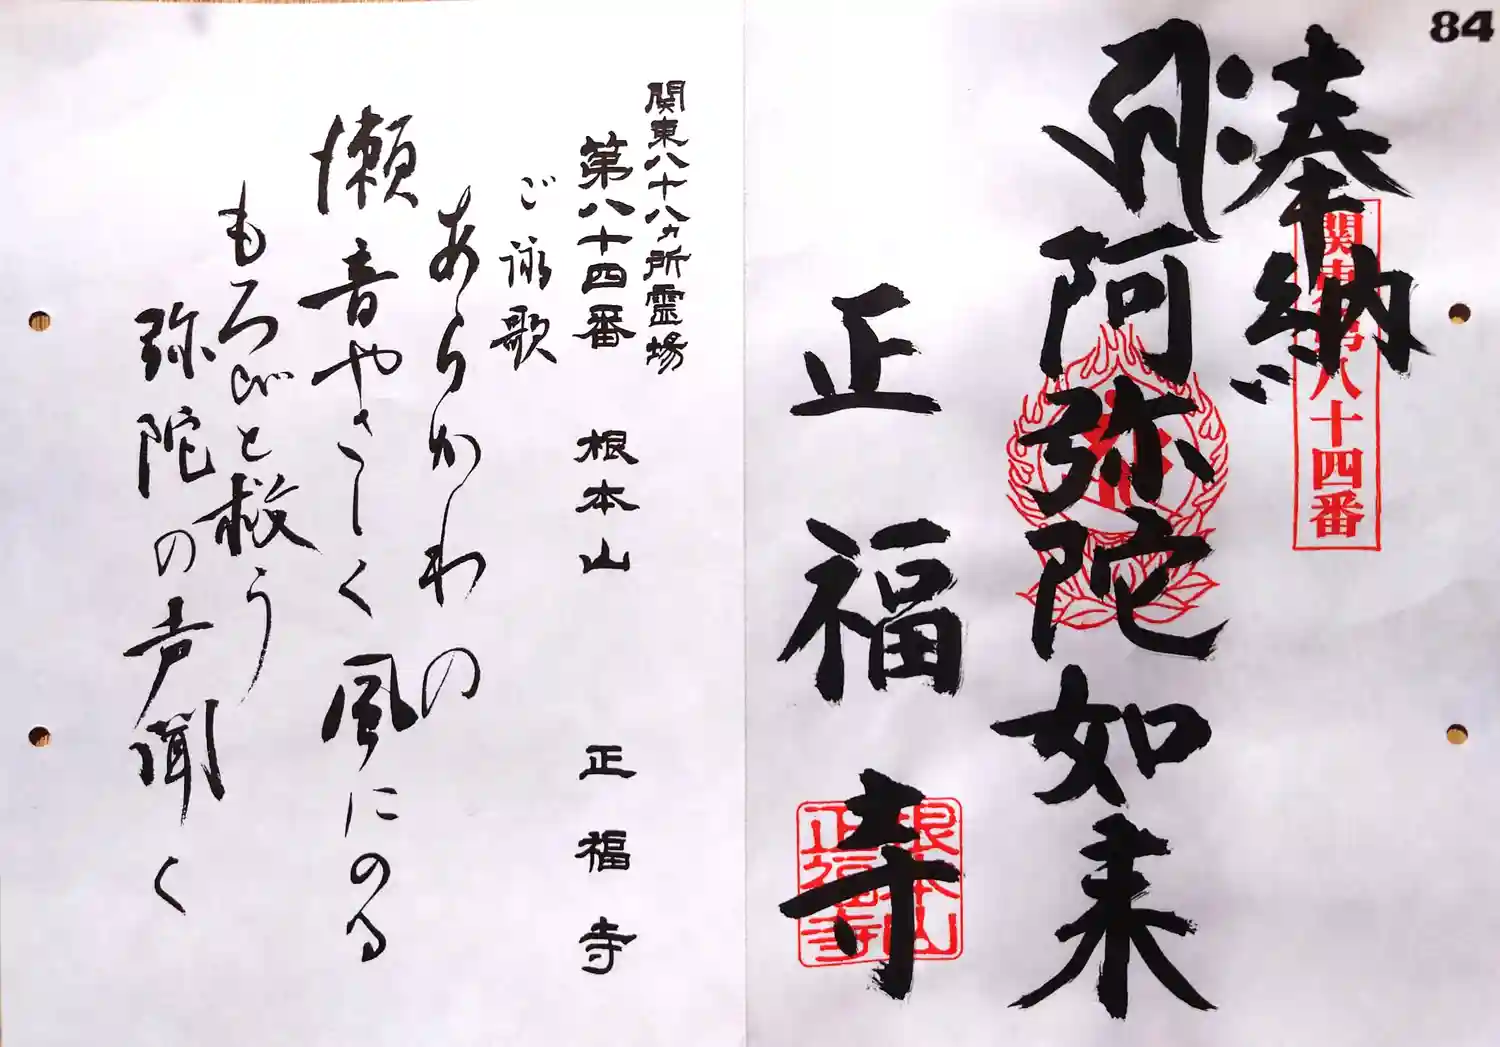 84
奉納
関東
第八十四番
阿弥陀如来
正福寺
根本山
正福寺
関東八十八ヵ所霊場
第八十四番 根本山 正福寺
ご詠歌
あらかわの
瀬音やさしく風にのる
もろびと救う
弥陀の声聞く